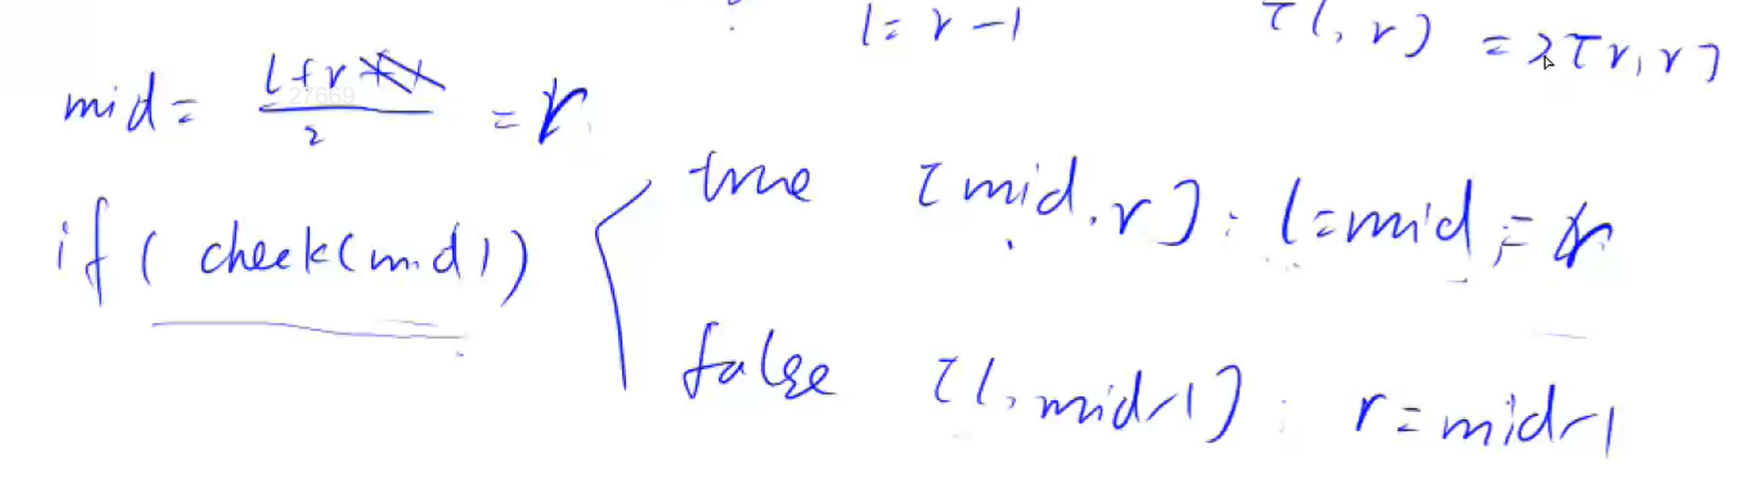 l = r - 1 [l, r] = [r, r]
mid = l + r / 2 = r
27669
if ( check(mid) ) true [mid, r] : l = mid = r
false [l, mid-1] : r = mid-1